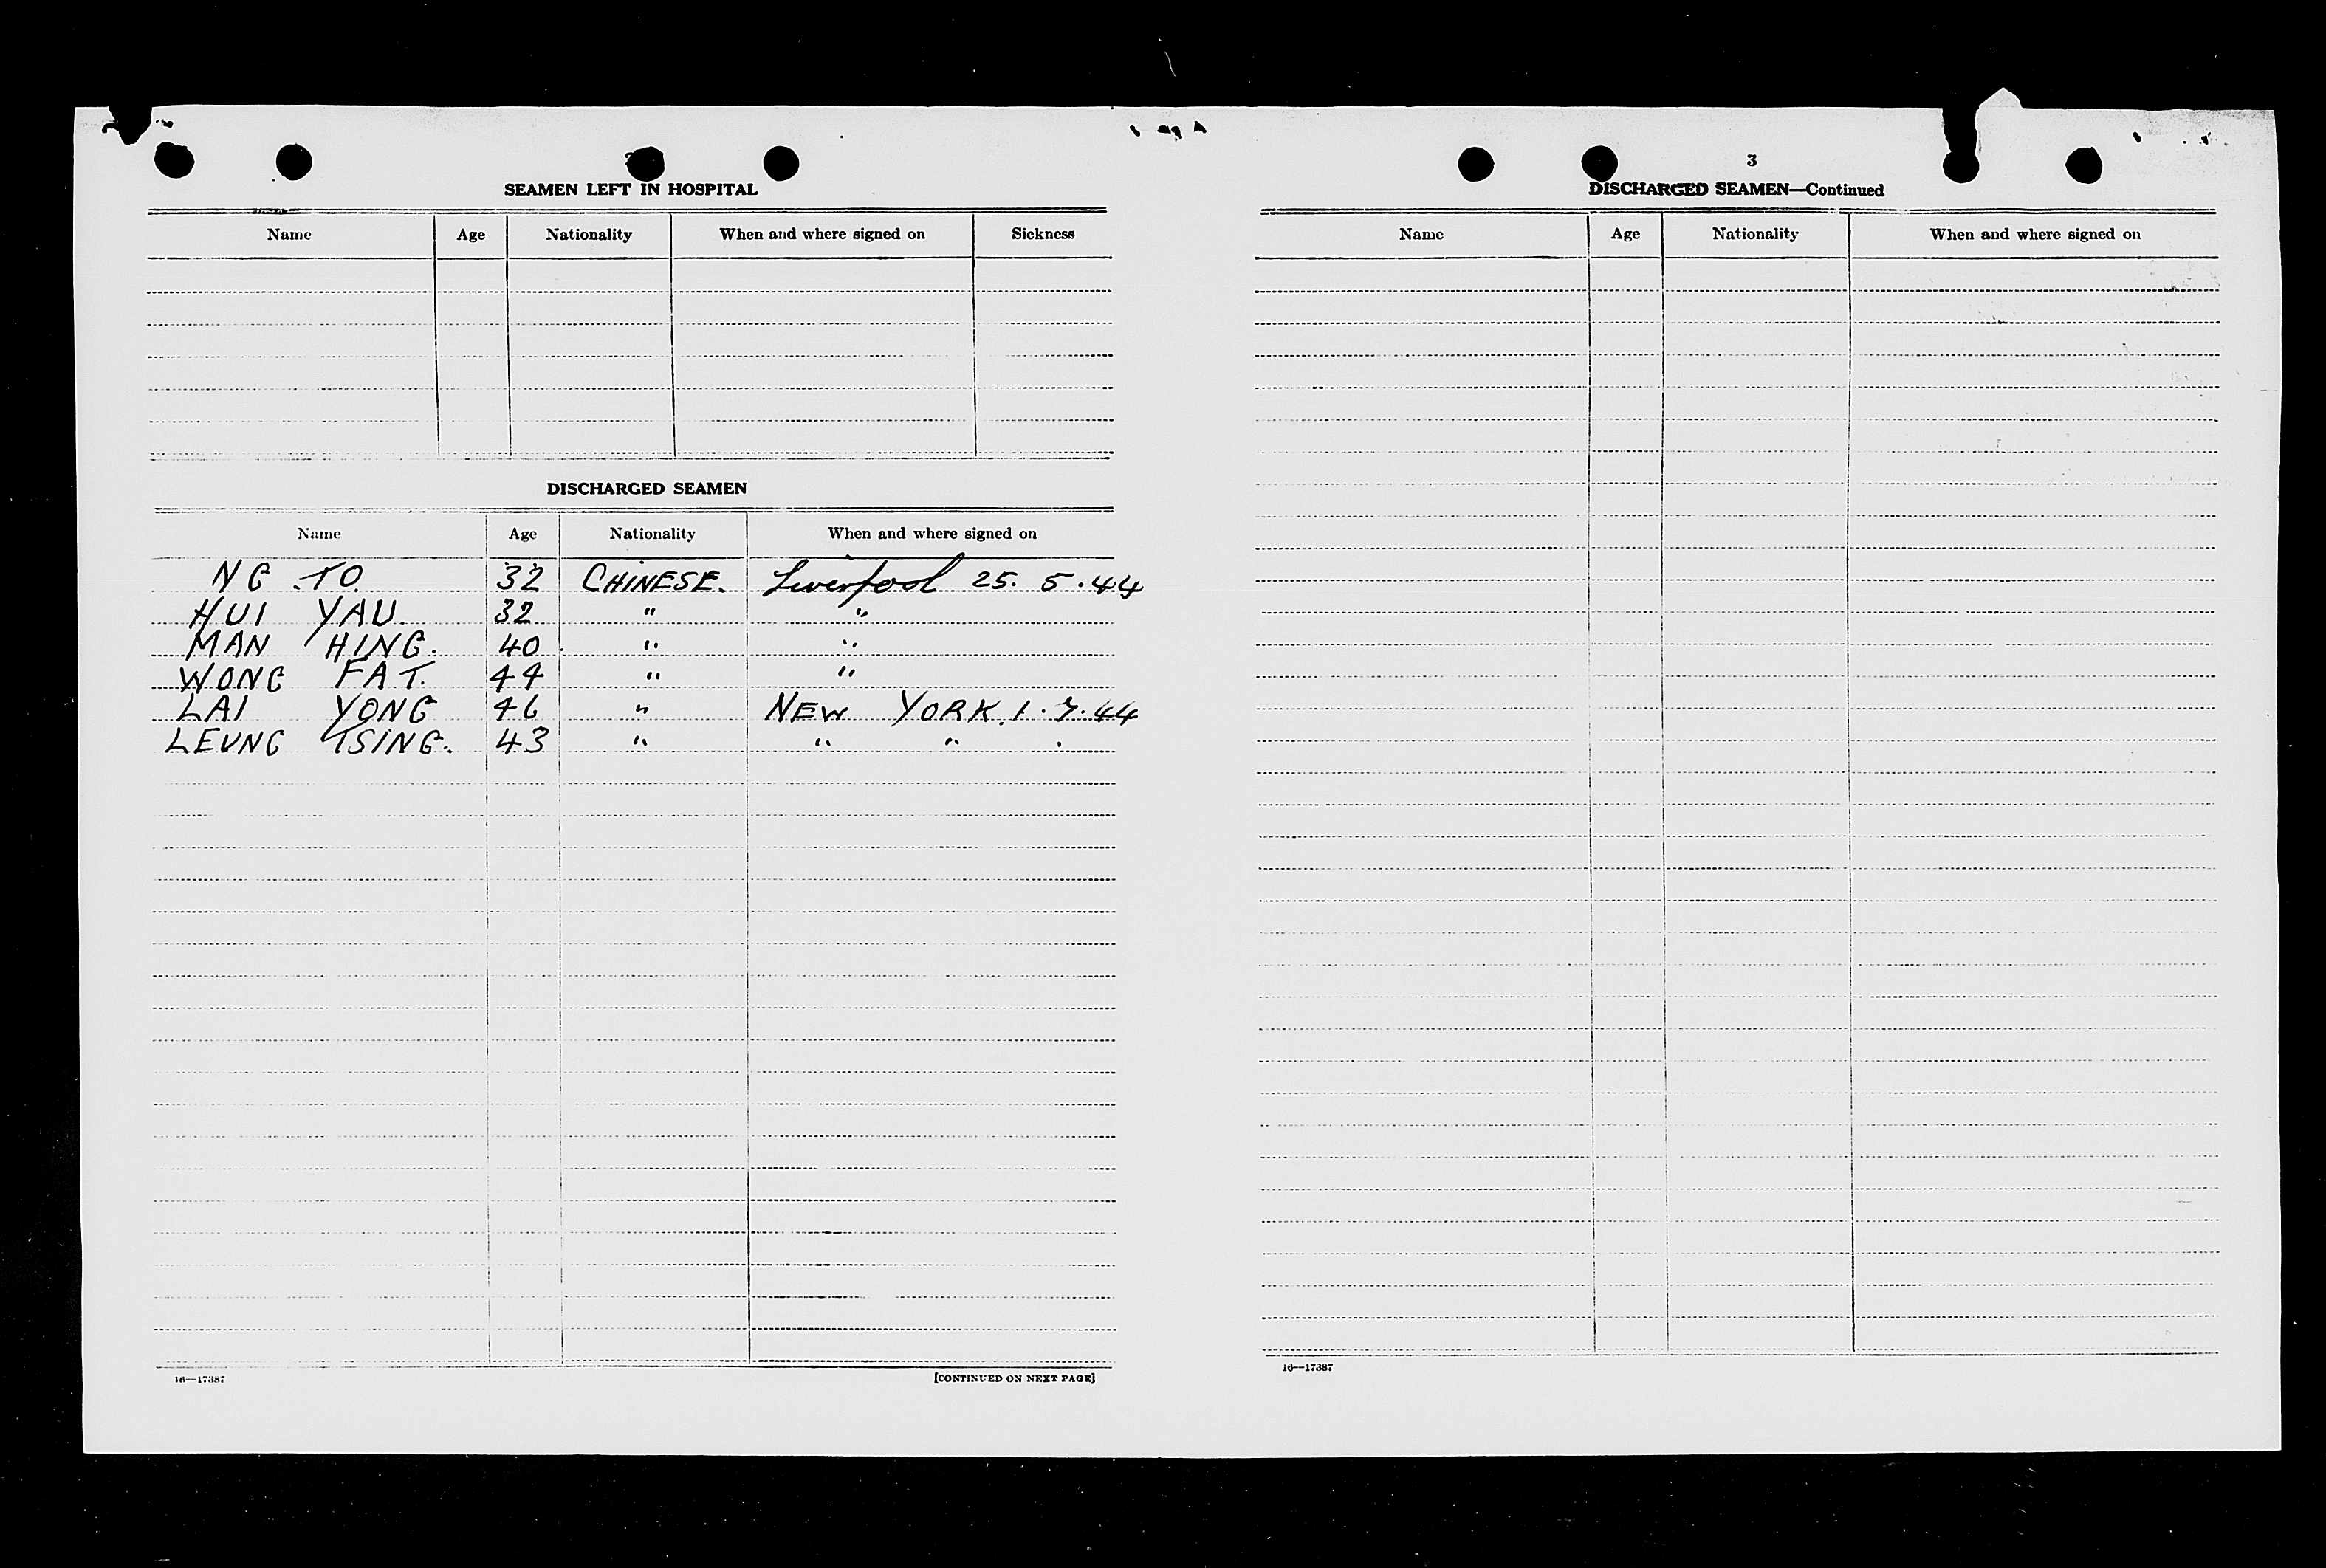 SEAMEN LEFT IN HOSPITAL
Name Age Nationality When and where signed on Sickness
DISCHARGED SEAMEN
Name Age Nationality When and where signed on
NG TO. 32 CHINESE. Liverpool 25. 5. 44
HUI YAU. 32 " "
MAN HING. 40 " "
WONG FAT. 44 " "
LAI YONG 46 " NEW YORK. 1. 7. 44
LEUNG TSING. 43 " " "
16—17387 [CONTINUED ON NEXT PAGE]
3
DISCHARGED SEAMEN—Continued
Name Age Nationality When and where signed on
16—17387